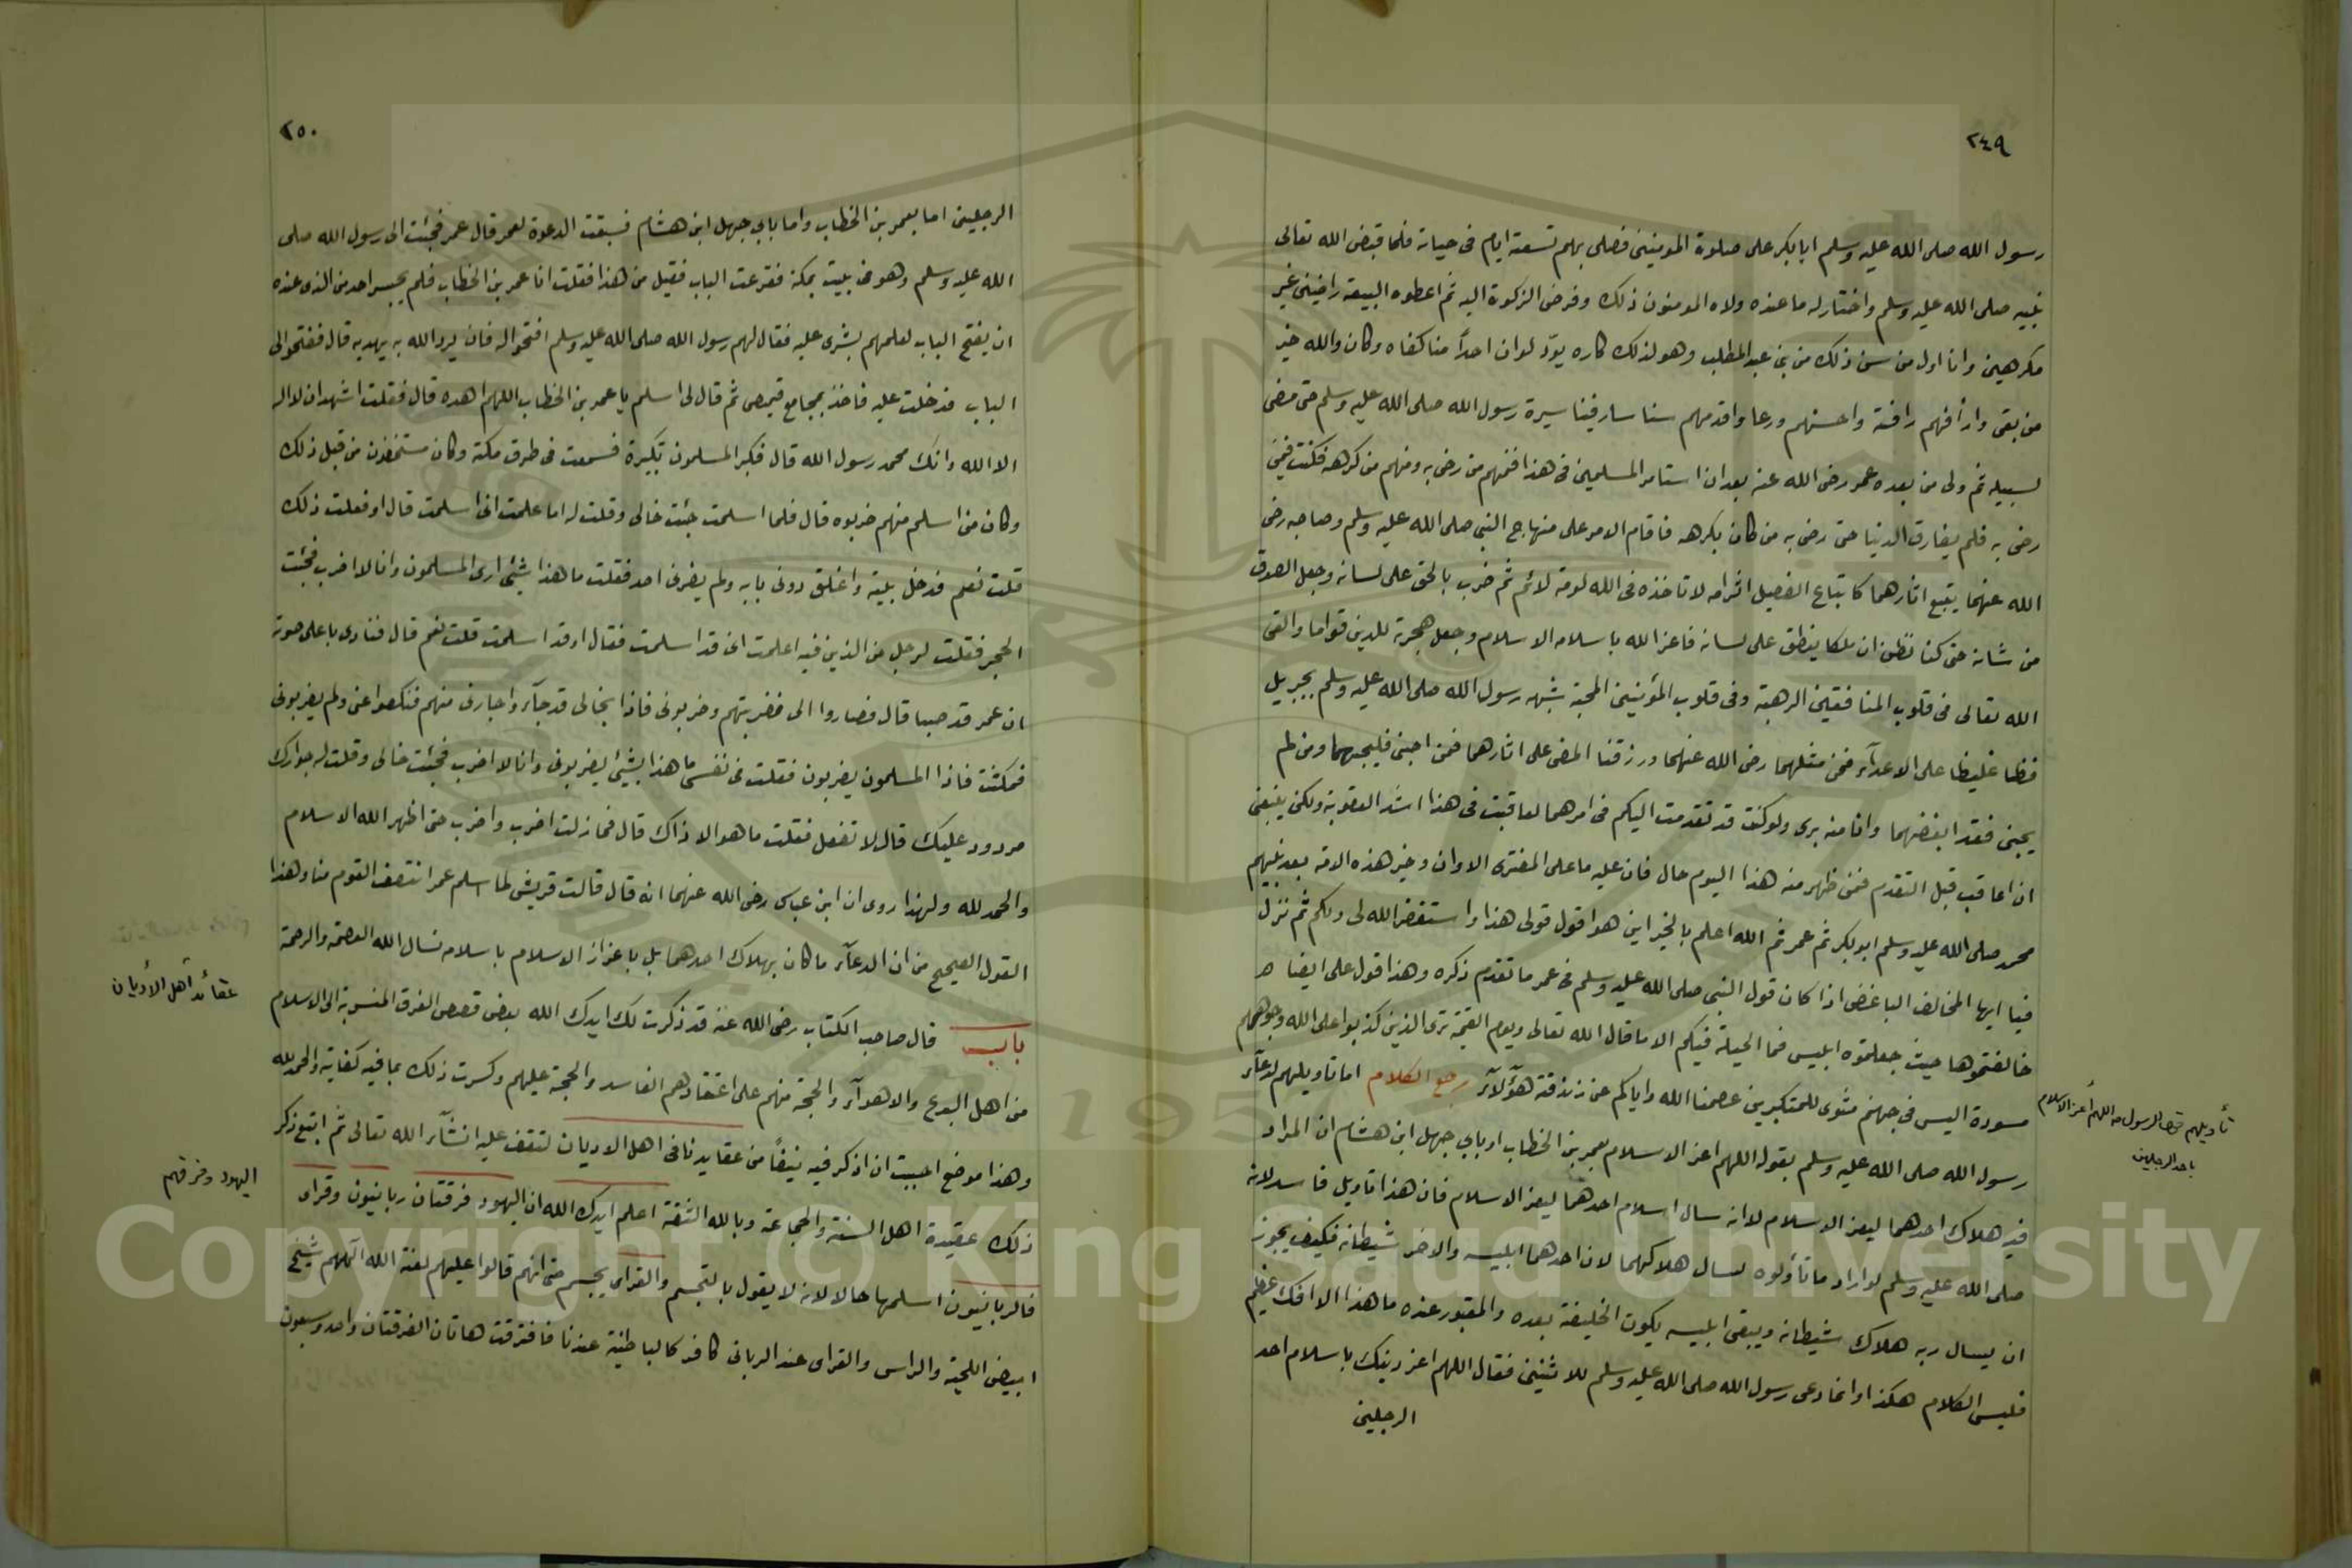 ٢٤٩
رسول الله صلى الله عليه وسلم ابا بكر على صلوة المومنين فصلى بهم تسعة ايام في حياته فلما قبض الله تعالى
نبيه صلى الله عليه وسلم واختار له ما عنده ولاه المومنون ذلك وفرض الزكوة اليه ثم اعطوه البيعة راضين غير
مكرهين وانا اول من سن ذلك من بني عبد المطلب وهو لذلك كاره يودّ لو ان احدًا منا كفاه وكان والله خير
من بقى وارافهم رافة واحسنهم ورعا واقدمهم سنا سار فينا سيرة رسول الله صلى الله عليه وسلم حتى مضى
لسبيله ثم ولى من بعده عمر رضى الله عنه بعد ان استامر المسلمين في هذا فمنهم من رضى به ومنهم من كرهه فكنت فيمن
رضى به فلم يفارق الدنيا حتى رضى به من كان يكرهه فاقام الامر على منهاج النبي صلى الله عليه وسلم وصاحبه رضى
الله عنهما يتبع اثارهما كاتباع الفصيل اثر امه لا تاخذه في الله لومة لائم ثم ضرب بالحق على لسانه وجعل الصدق
من شانه حتى كنا نظن ان ملكا ينطق على لسانه فاعز الله باسلامه الاسلام وجعل هجرته للدين قواما والقى
الله تعالى في قلوب المنافقين الرهبة وفي قلوب المؤمنين المحبة شبهه رسول الله صلى الله عليه وسلم بجبريل
فظا غليظا على الاعدآء فمن مثلهما رضى الله عنهما ورزقنا المضى على اثارهما فمن احبنى فليحبهما ومن لم
يحبنى فقد ابغضهما وانا منه برى ولو كنت قد تقدمت اليكم في امرهما لعاقبت في هذا اشد العقوبة ولكن ينبغى
ان اعاقب قبل التقدم فمن ظهر منه هذا اليوم حال فان عليه ما على المفترى الا وان وخير هذه الامة بعد نبيهم
محمد صلى الله عليه وسلم ابو بكر ثم عمر ثم الله اعلم بالخير اين هو اقول قولى هذا واستغفر الله لى ولكم ثم نزل
فيا ايها المخالف الباغض اذا كان قول النبي صلى الله عليه وسلم في عمر ما تقدم ذكره وهذا قول على ايضا
خالفتموها حيث جعلتموه ابليس فما الحيلة فيكم الا ما قال الله تعالى ويوم القيمة ترى الذين كذبوا على الله وجوههم
مسودة اليس في جهنم مثوى للمتكبرين عصمنا الله واياكم عن زندقة هؤلآء رجع الكلام اما تاويلهم لدعآء
رسول الله صلى الله عليه وسلم بقوله اللهم اعز الاسلام بعمر بن الخطاب او بابي جهل ابن هشام ان المراد
فيه هلاك احدهما ليعز الاسلام لا انه سال اسلام احدهما ليعز الاسلام فان هذا تاويل فاسد لانه
صلى الله عليه وسلم لو اراد ما تأولوه لسال هلاكهما لان احدهما ابليسه والاخر شيطانه فكيف يجوز
ان يسال ربه هلاك شيطانه ويبقى ابليسه يكون الخليفة بعده والمقبور عنده ما هذا الا افك عظيم
فليس الكلام هكذا وانما دعى رسول الله صلى الله عليه وسلم للاثنين فقال اللهم اعز دينك باسلام احد
الرجلين
تأويلهم الرسول اللهم أعز الاسلام
باحد الرجلين
٢٥٠
الرجلين اما بعمر بن الخطاب واما بابي جهل ابن هشام فسبقت الدعوة لعمر قال عمر فجئت الى رسول الله صلى
الله عليه وسلم وهو في بيت بمكة فقرعت الباب فقيل من هذا فقلت انا عمر بن الخطاب فلم يجسر احد من الذى عنده
ان يفتح الباب لعلمهم بشرى عليه فقال لهم رسول الله صلى الله عليه وسلم افتحوا له فان يرد الله به يهديه قال ففتحوا لى
الباب فدخلت عليه فاخذ بمجامع قيمصى ثم قال لى اسلم يا عمر بن الخطاب اللهم اهده قال فقلت اشهد ان لا اله
الا الله وانك محمد رسول الله قال فكبر المسلمون تكبيرة فسمعت في طرق مكة وكان مستخفون من قبل ذلك
وكان من اسلم منهم ضربوه قال فلما اسلمت جئت خالى وقلت له اما علمت انى اسلمت قال اوفعلت ذلك
قلت نعم فدخل بيته واغلق دونى بابه ولم يضربنى احد فقلت ما هذا بشئ ارى المسلمون وانا لا اضرب فجئت
الحجر فقلت لرجل من الذين فيه اعلمت انى قد اسلمت فقال اوقد اسلمت قلت نعم قال فنادى باعلى صوته
ان عمر قد صبا قال فصاروا الى فضربتهم وضربونى فاذا بخالى قد جآء واجارنى منهم فنكصوا عنى ولم يضربونى
فمكثت فاذا المسلمون يضربون فقلت في نفسى ما هذا بشئ يضربون وانا لا اضرب فجئت خالى وقلت له جوارك
مردود عليك قال لا تفعل فقلت ما هو الا ذاك قال فما زلت اضرب واضرب حتى اظهر الله الاسلام
والحمد لله ولهذا روى ان ابن عباس رضى الله عنهما انه قال قالت قريش لما اسلم عمر انتصف القوم منا وهذا
القول الصحيح من ان الدعآء ما كان بهلاك احدهما بل باعزاز الاسلام باسلامه نسال الله العصمة والرحمة
باب قال صاحب الكتاب رضى الله عنه قد ذكرت لك ايدك الله بعض قصص الفرق المنسوبة الى الاسلام
من اهل البدع والاهوآء والحجة منهم على اعتقادهم الفاسد والحجة عليهم وكسرت ذلك بما فيه كفاية والحمد لله
وهذا موضع احببت ان اذكر فيه نيفًا من عقايدنا في اهل الاديان لتقف عليه انشآء الله تعالى ثم اتبع ذكر
ذلك عقيدة اهل السنة والجماعة وبالله الثقة اعلم ايدك الله ان اليهود فرقتان ربانيون وقراى
فالربانيون اسلمها حالا لانه لا يقول بالتجسم والقراى يجسم حتى انهم قالوا عليهم لعنة الله الههم شيخ
ابيض اللحية والراس والقراى عند الربانى كافر كالباطنية عندنا فافترقت هاتان الفرقتان واحد وسبعون
عقائد أهل الأديان
اليهود وفرقهم
Copyright © King Saud University
1957